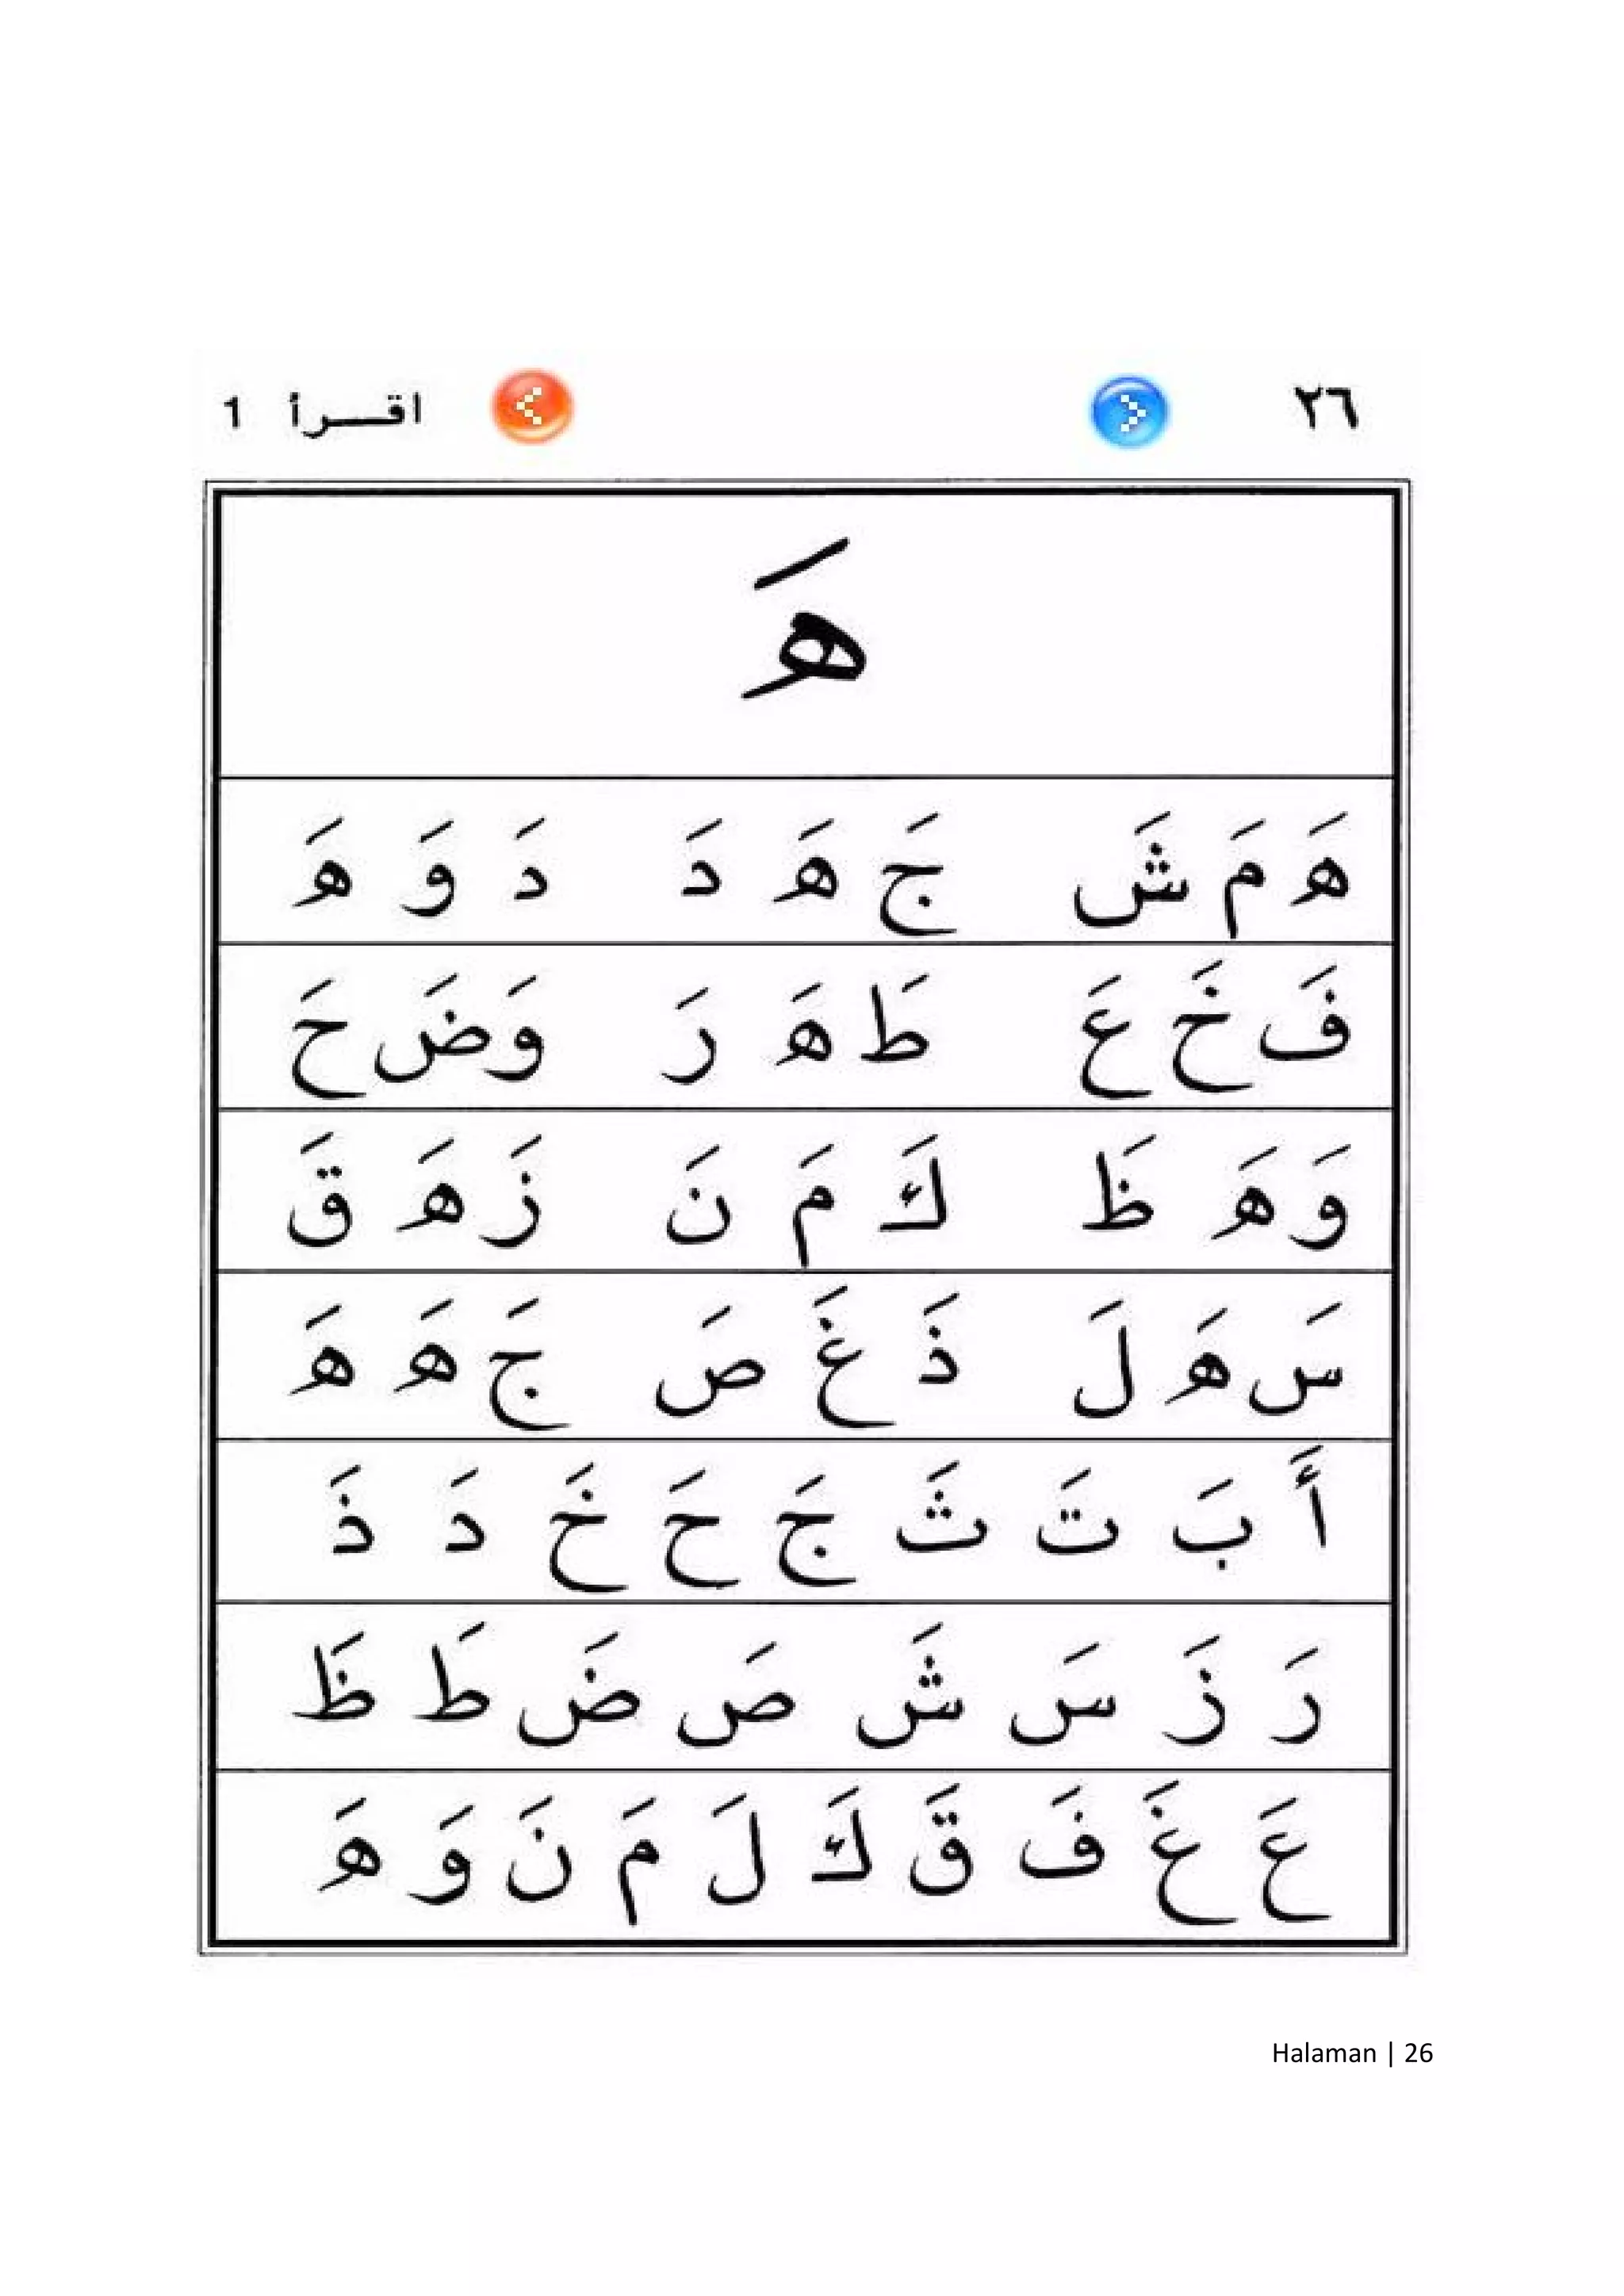 ٢٦ اقـــرأ 1
هَ
هَ مَ شَ جَ هَ دَ دَ وَ هَ
فَ خَ عَ طَ هَ رَ وَ ضَ حَ
وَ هَ ظَ كَ مَ نَ زَ هَ قَ
سَ هَ لَ ذَ غَ صَ جَ هَ هَ
أَ بَ تَ ثَ جَ حَ خَ دَ ذَ
رَ زَ سَ شَ صَ ضَ طَ ظَ
عَ غَ فَ قَ كَ لَ مَ نَ وَ هَ
Halaman | 26